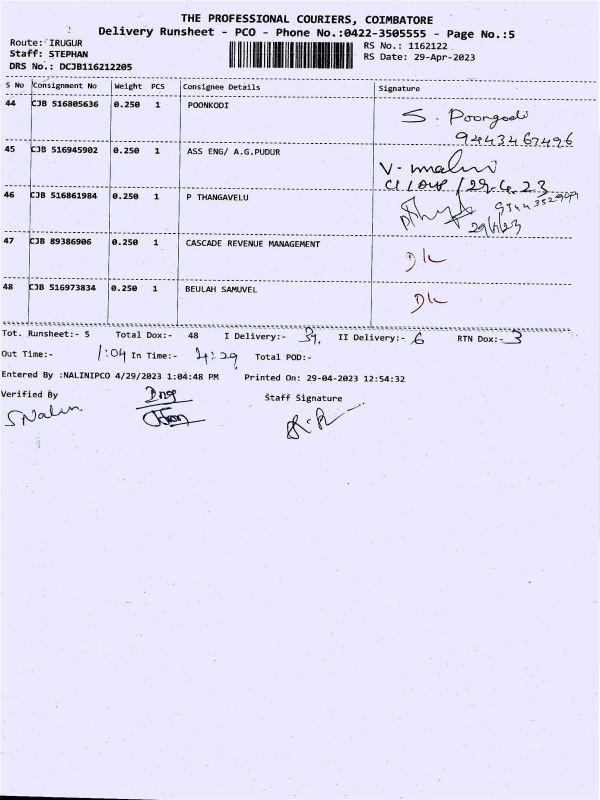 THE PROFESSIONAL COURIERS, COIMBATORE
Delivery Runsheet - PCO - Phone No.:0422-3505555 - Page No.:5
Route: IRUGUR
RS No.: 1162122
Staff: STEPHAN
RS Date: 29-Apr-2023
DRS No.: DCJB116212205
S No Consignment No Weight PCS Consignee Details Signature
44 CJB 516805636 0.250 1 POONKODI S. Poongodi
9443467496
45 CJB 516945902 0.250 1 ASS ENG/ A.G.PUDUR V. malini
29.4.23
46 CJB 516861984 0.250 1 P THANGAVELU
29/4/23
47 CJB 89386906 0.250 1 CASCADE REVENUE MANAGEMENT DL
48 CJB 516973834 0.250 1 BEULAH SAMUVEL DL
Tot. Runsheet:- 5 Total Dox:- 48 I Delivery:- 39, II Delivery:- 6 RTN Dox:- 3
Out Time:- 1:04 In Time:- 4:29 Total POD:-
Entered By :NALINIPCO 4/29/2023 1:04:48 PM Printed On: 29-04-2023 12:54:32
Verified By Staff Signature
SNalin.